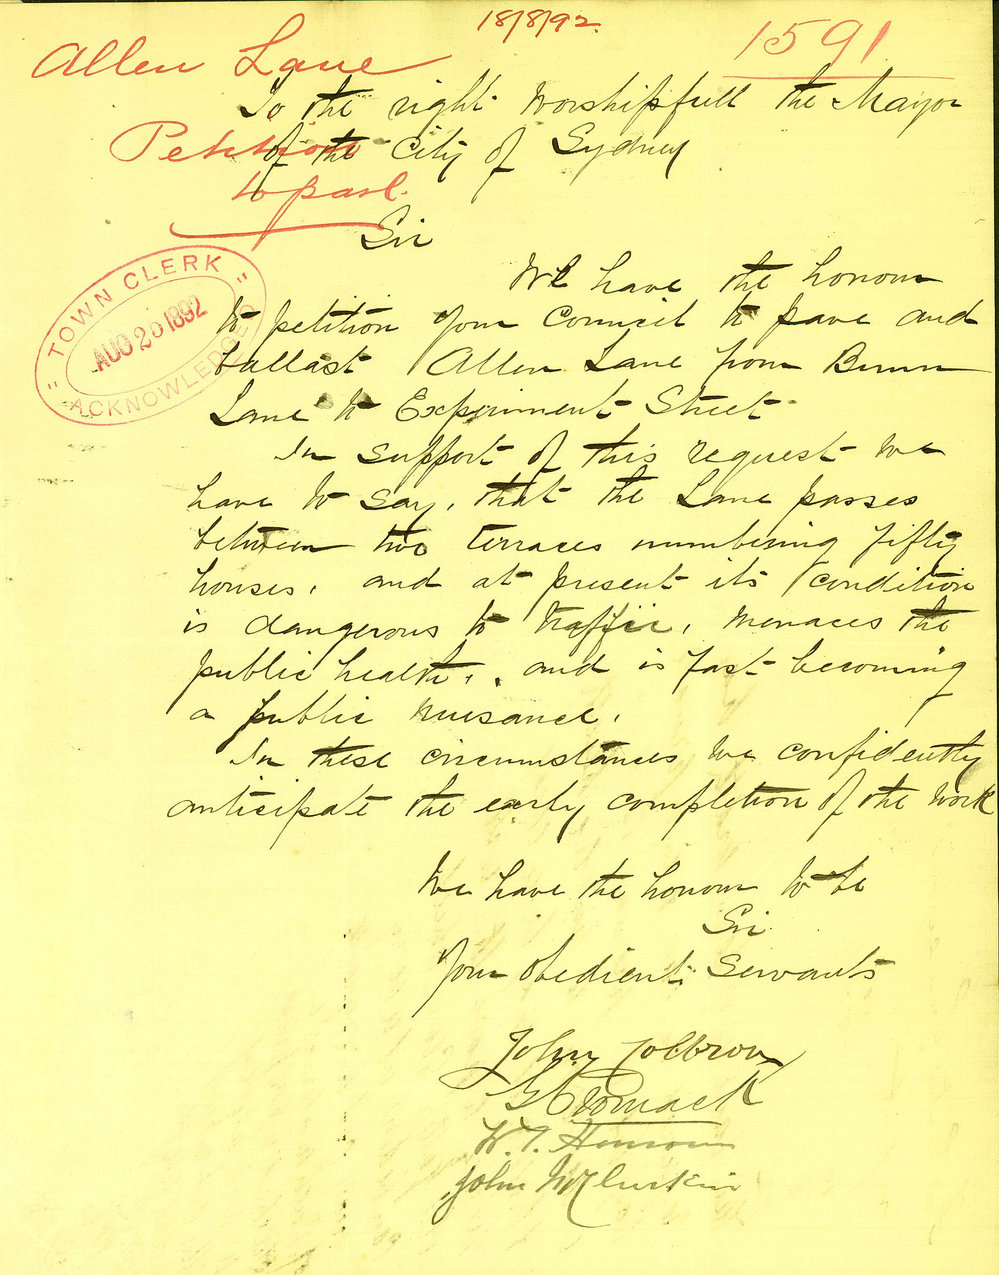 18/8/92.
1591
Allen Lane
Petition
to pave.
TOWN CLERK
AUG 20 1892
ACKNOWLEDGED
To the right Worshipfull the Mayor
of the City of Sydney
Sir
We have the honour
to petition your Council to pave and
ballast Allen Lane from Bunn
Lane to Experiment Street
In support of this request we
have to say, that the Lane passes
between two terraces numbering fifty
houses, and at present its condition
is dangerous to traffic, menaces the
public health, and is fast becoming
a public nuisance.
In these circumstances we confidently
anticipate the early completion of the work
We have the honour to be
Sir
Your obedient Servants
John
W. T.
John